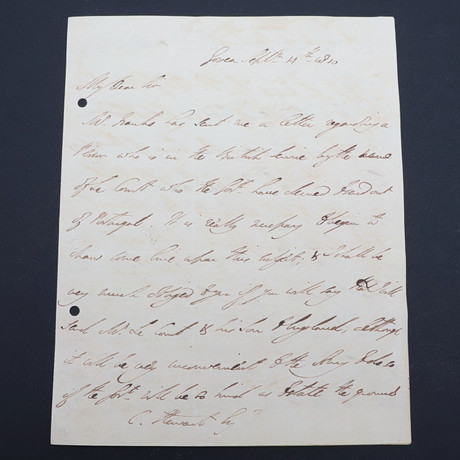 Govea Septr. 11th 1810
My Dear Sir
Mr. has sent me a letter regarding a
Person who is in the British Service by the name
of Le Comte who the Govt. have desired to send out
of Portugal. It is really necessary to begin to
draw line upon this subject; & I shall be
very much obliged to you if you will say that I will
send Mr. Le Comte & his Son to England, although
it will be very inconvenient to the Army to do so
if the Govt. will be so kind as to state the grounds
C. Stewart Esqr.